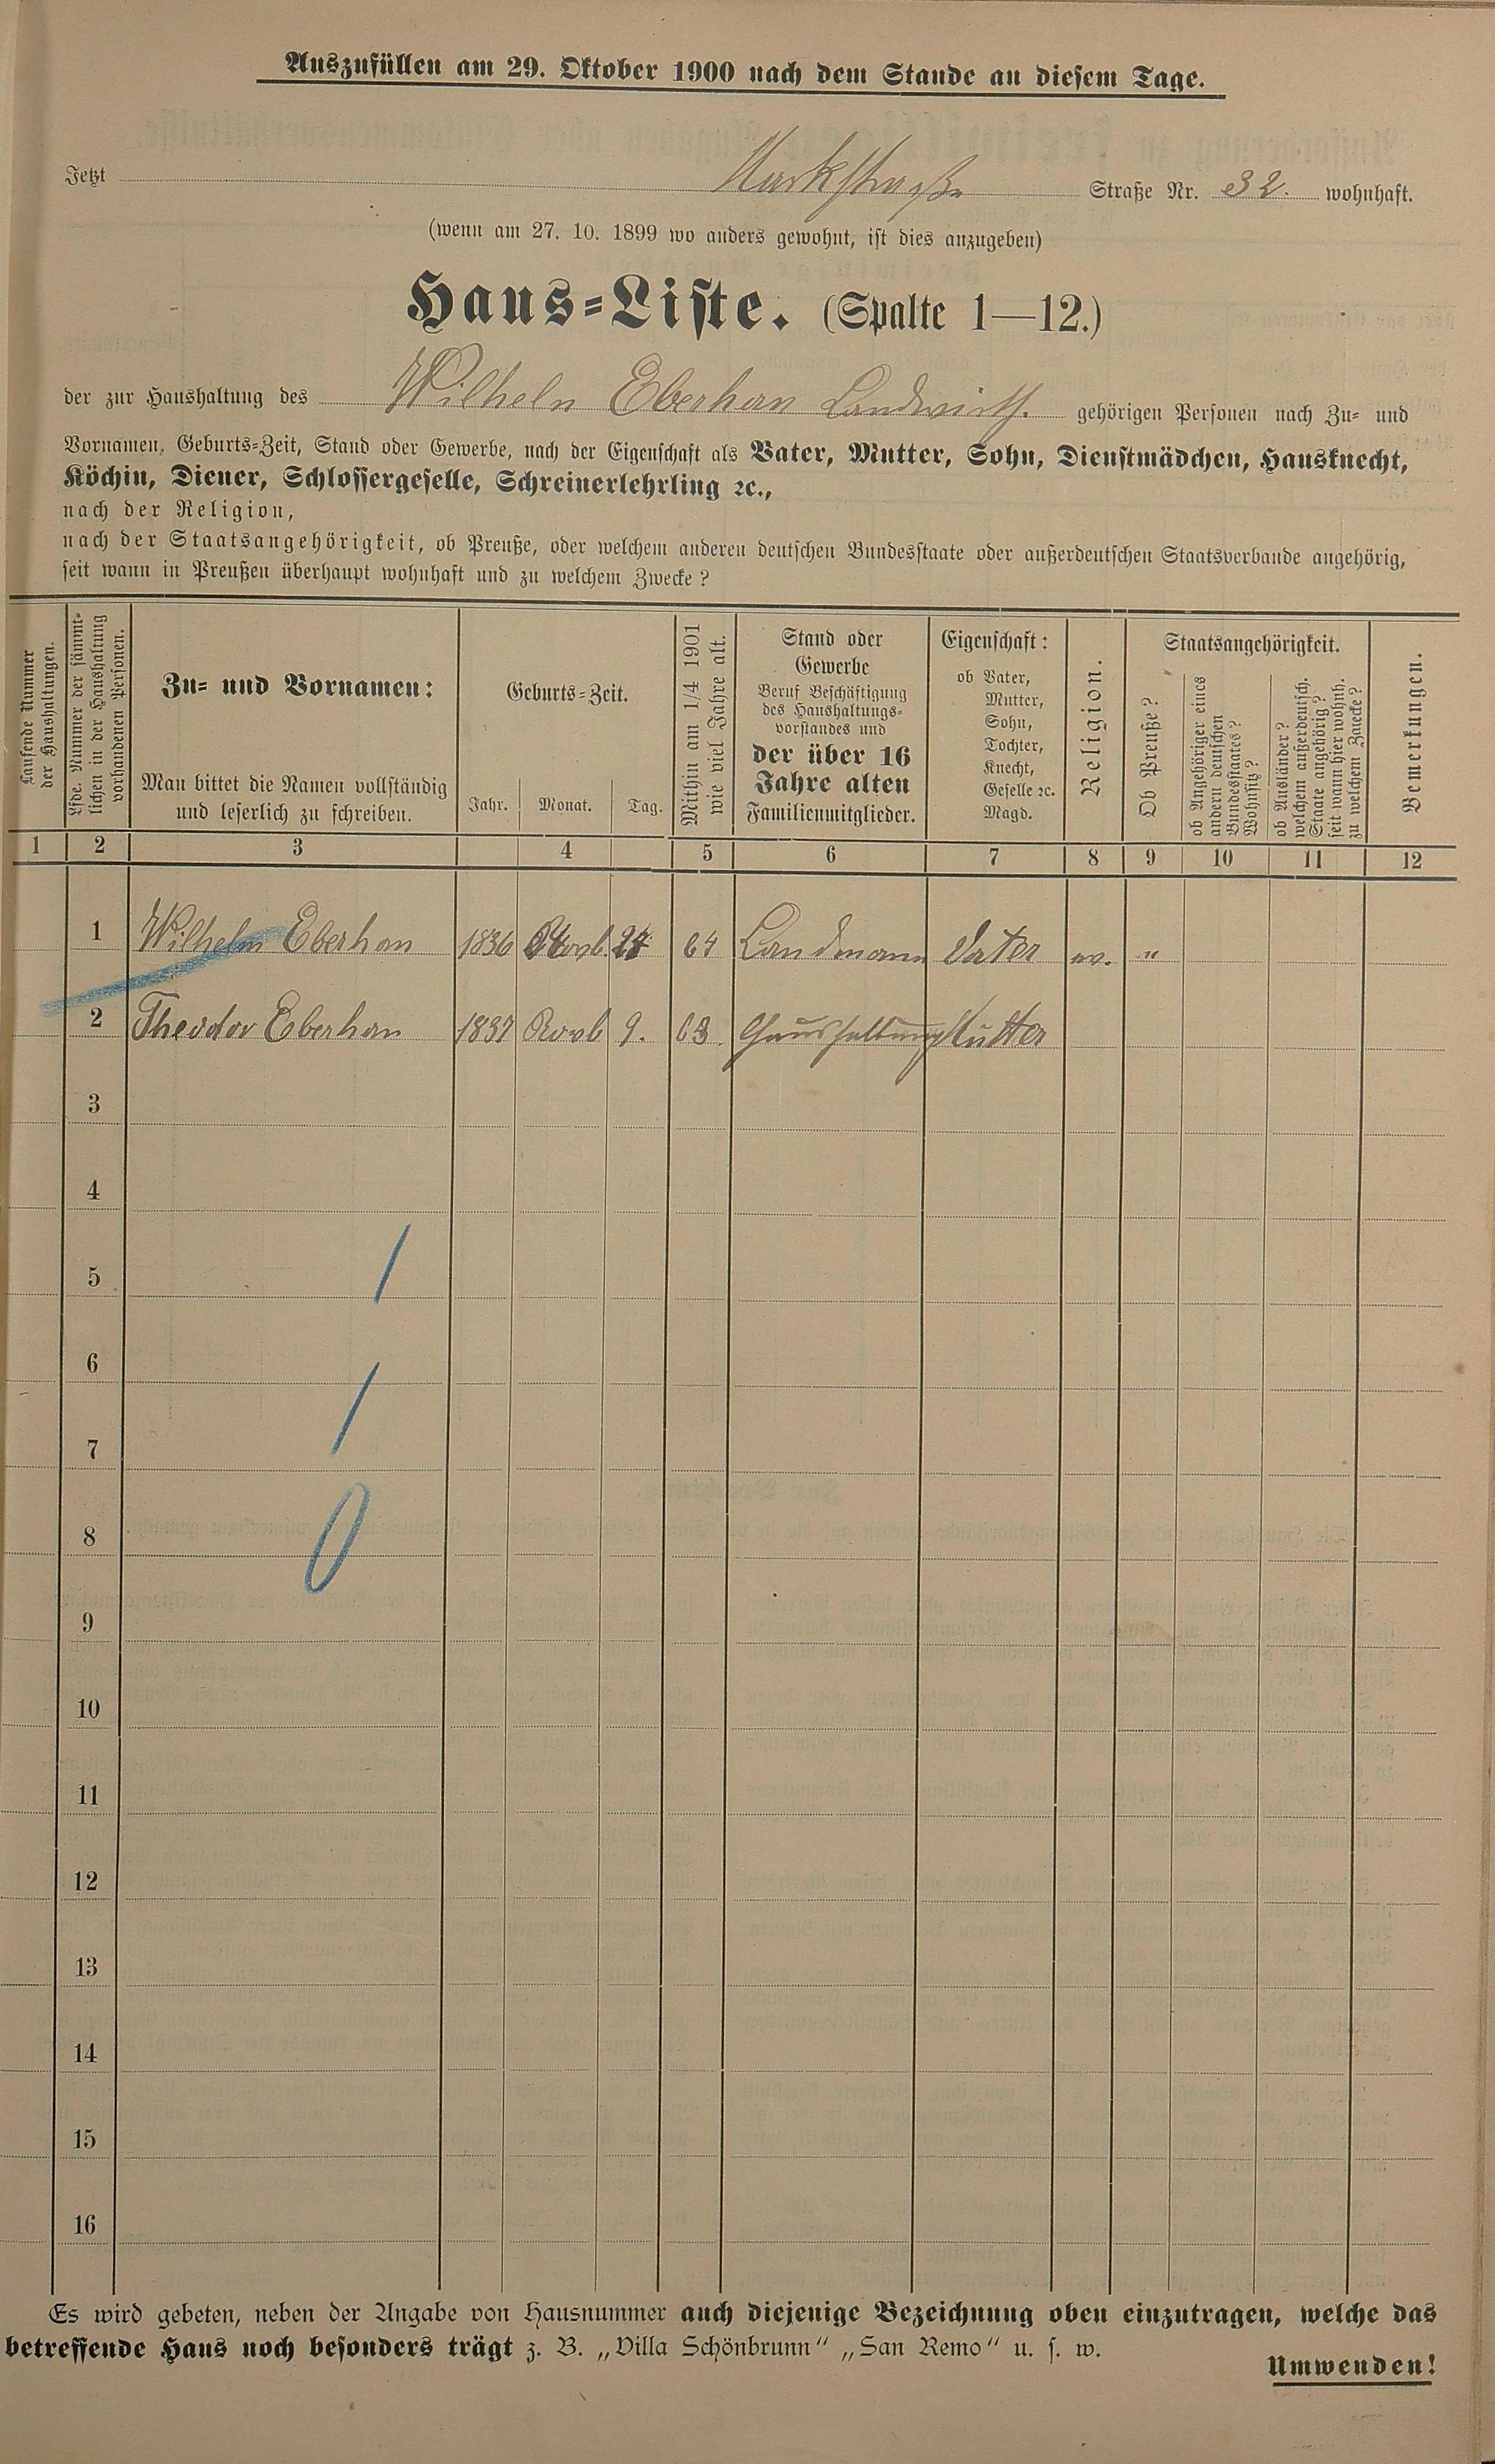 Auszufüllen am 29. Oktober 1900 nach dem Stande an diesem Tage.
Jetzt Markstraße Straße Nr. 32. wohnhaft.
(wenn am 27. 10. 1899 wo anders gewohnt, ist dies anzugeben)
Haus-Liste. (Spalte 1—12.)
der zur Haushaltung des Wilhelm Eberhan Landwirth. gehörigen Personen nach Zu- und
Vornamen, Geburts-Zeit, Stand oder Gewerbe, nach der Eigenschaft als Vater, Mutter, Sohn, Dienstmädchen, Hausknecht,
Köchin, Diener, Schlossergeselle, Schreinerlehrling ꝛc.,
nach der Religion,
nach der Staatsangehörigkeit, ob Preuße, oder welchem anderen deutschen Bundesstaate oder außerdeutschen Staatsverbande angehörig,
seit wann in Preußen überhaupt wohnhaft und zu welchem Zwecke?
Laufende Nummer
der Haushaltungen.
Lfde. Nummer der sämmt-
lichen in der Haushaltung
vorhandenen Personen.
Zu- und Vornamen:
Man bittet die Namen vollständig
und leserlich zu schreiben.
Geburts-Zeit.
Jahr. Monat. Tag.
Mithin am 1/4 1901
wie viel Jahre alt.
Stand oder
Gewerbe
Beruf Beschäftigung
des Haushaltungs-
vorstandes und
der über 16
Jahre alten
Familienmitglieder.
Eigenschaft:
ob Vater,
Mutter,
Sohn,
Tochter,
Knecht,
Geselle ꝛc.
Magd.
Religion.
Staatsangehörigkeit.
Ob Preuße?
ob Angehöriger eines
andern deutschen
Bundesstaates?
Wohnsitz?
ob Ausländer?
welchem außerdeutsch.
Staate angehörig?
seit wann hier wohnh.
zu welchem Zwecke?
Bemerkungen.
1 2 3 4 5 6 7 8 9 10 11 12
1 Wilhelm Eberhan 1836 Novb. 24 64 Landmann Vater ev. "
2 Theodor Eberhan 1837 Novb 9. 63. Haushaltung Mutter
3
4
5
6
7
8
9
10
11
12
13
14
15
16
Es wird gebeten, neben der Angabe von Hausnummer auch diejenige Bezeichnung oben einzutragen, welche das
betreffende Haus noch besonders trägt z. B. „Villa Schönbrunn“ „San Remo“ u. s. w.
Umwenden!